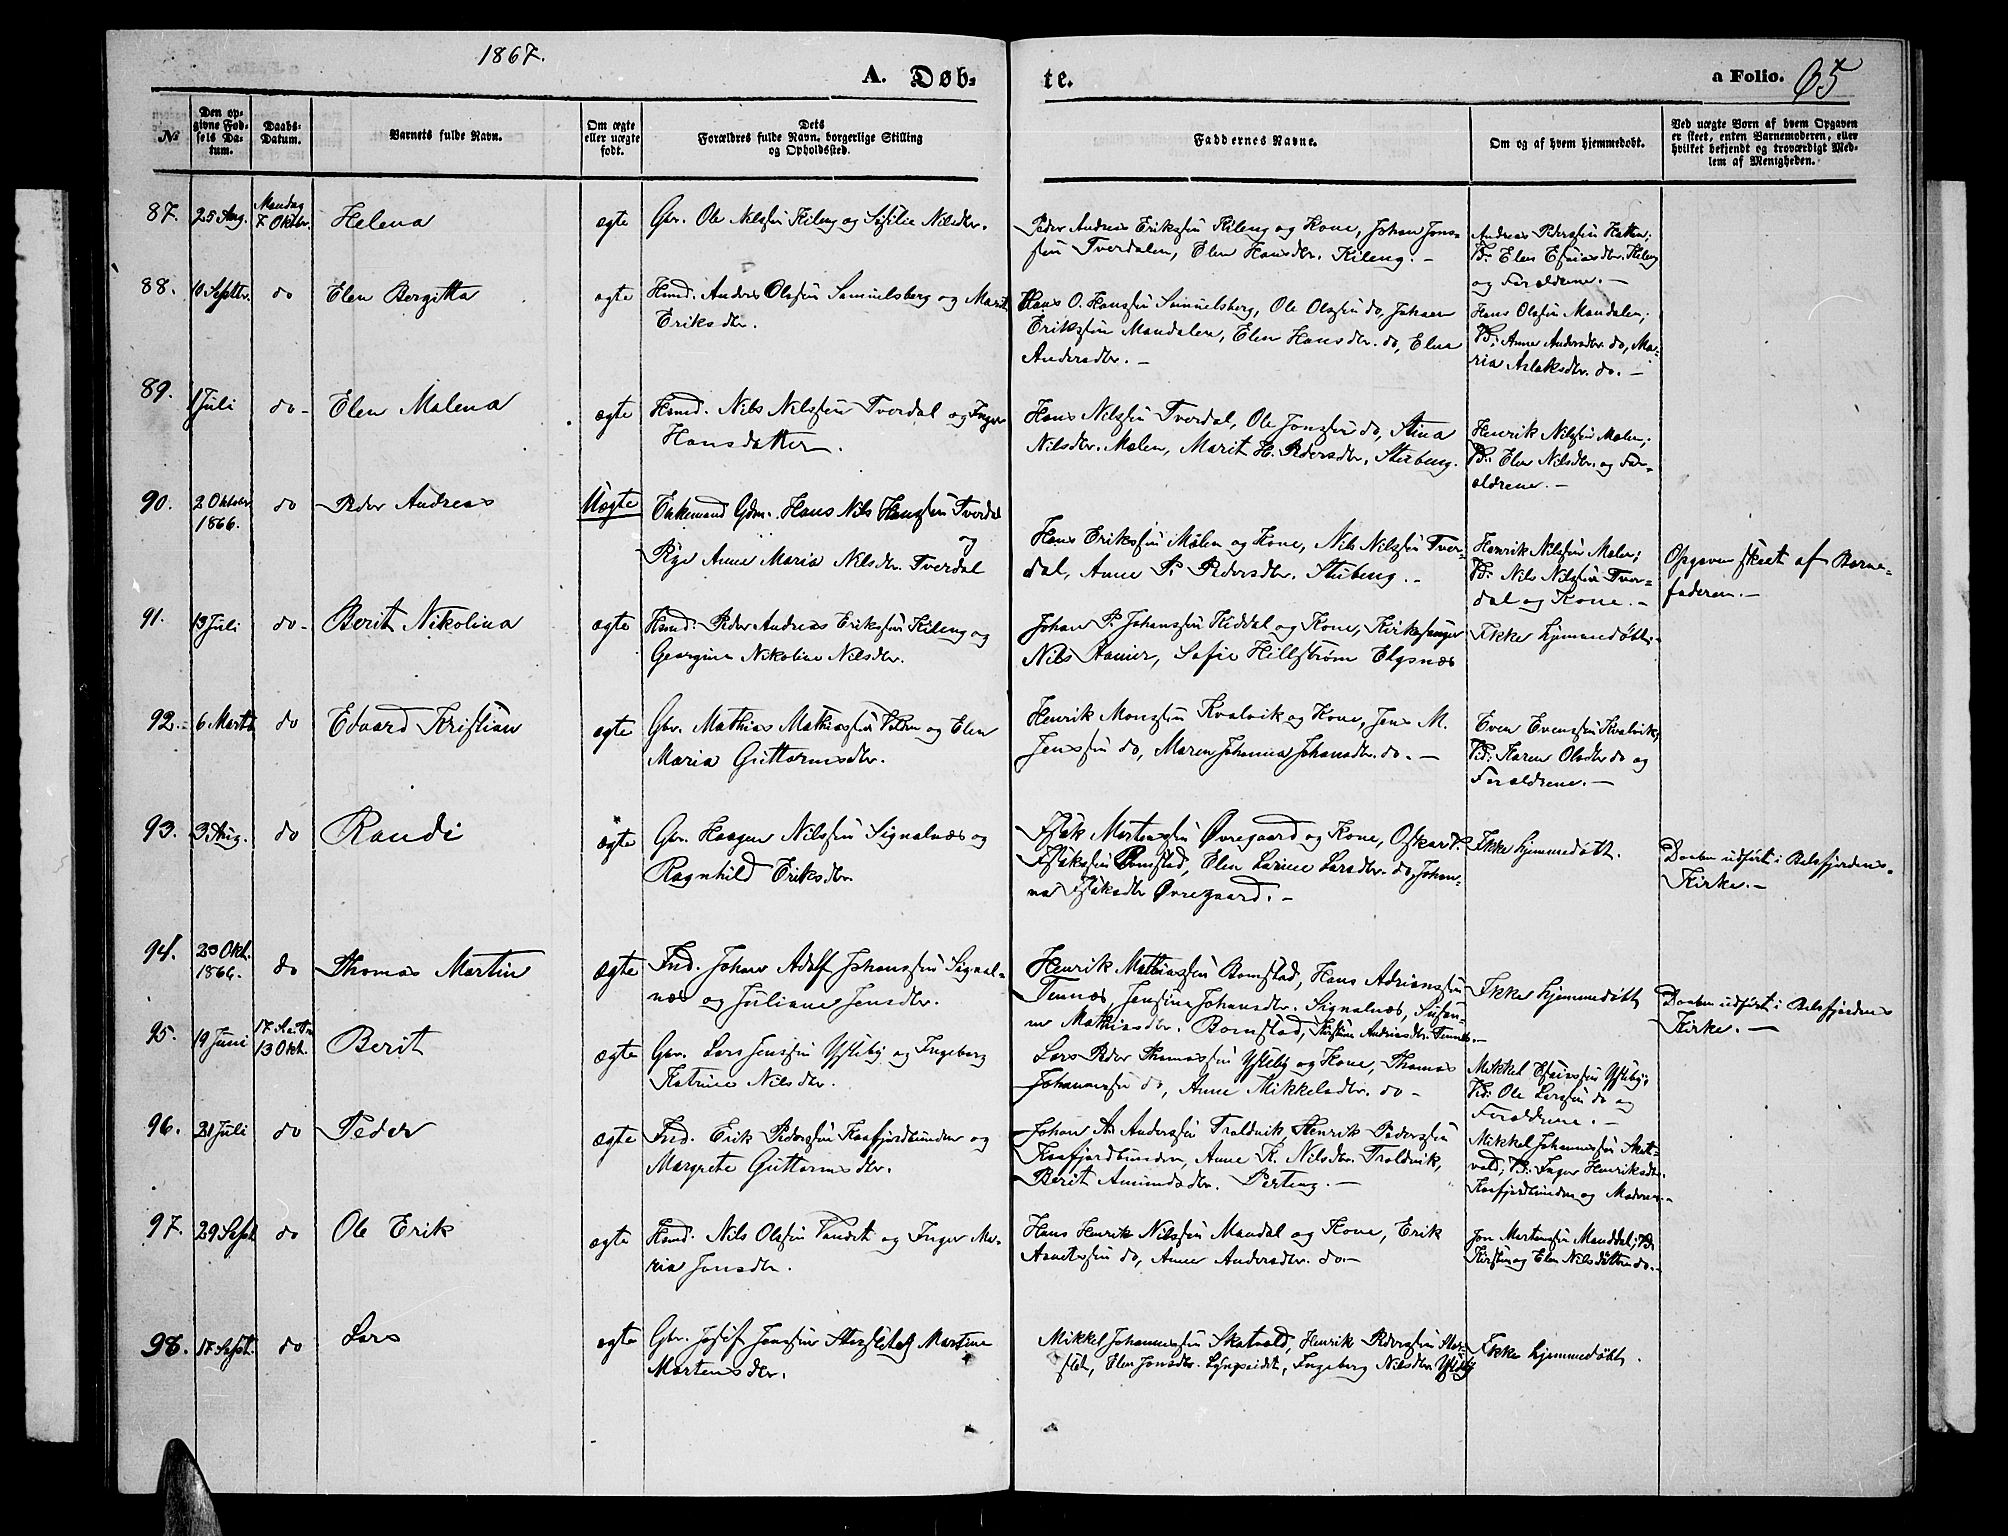 1867.
A. Døb-
te.
a Folio. 65
№
Den op-
givne Fød-
sels Da-
tum.
Daabs-
Datum.
Barnets fulde Navn.
Om ægte
eller uægte
født.
Dets
Forældres fulde Navn, borgerlige Stilling
og Opholdssted.
Faddernes Navne.
Om og af hvem hjemmedøbt.
Ved uægte Børn af hvem Opgaven
er skeet, enten Barnemoderen, eller
hvilket bekjendt og troværdigt Med-
lem af Menigheden.
87. 25 Aug. Mandag
7 Oktbr. Helena ægte Gbr. Ole Nilssøn Kileng og Nilsdtr.
Peder Andreas Erikssøn Kileng og Kone, Johan Jons-
søn Tverdalen, Elen Hansdtr. Kileng. –
Andreas Pederssøn
Elen Kileng
og Forældrene. –
88. 10 Septbr. do Elen Bergitta ægte Hmd. Anders Olssøn Samuelsberg og Marit
Eriksdtr.
Hans O. Hanssøn Samuelsberg, Ole Olssøn do, Johan
Erikssøn Mandalen, Elen Hansdtr. do, Elen
Andersdtr. –
Hans Olssøn Mandalen;
Anne Andersdtr. do, Ma-
ria Aslaksdtr. do. –
89. 1 Juli do – Elen Malena ægte Hmd. Nils Nilssøn Tverdal og Inger
Hansdatter.
Hans Nilssøn Tverdal, Ole Jonssøn do, Stina
Nilsdtr. Malen, Marit H. Pedersdtr. Stubeng.
Henrik Nilssøn Malen;
Elen Nilsdtr. og For-
ældrene. –
90. 2 Oktober
1866. do Peder Andreas Uægte Enkemand Gdm. Hans Nils Hanssøn Tverdal
og
Pige Anne Maria Nilsdtr. Tverdal
Hans Erikssøn Malen og Kone, Nils Nilssøn Tver-
dal, Anne P. Pedersdtr. Stubeng. –
Henrik Nilssøn Malen;
Nils Nilssøn Tver-
dal og Kone. –
Opgaven skeet af Barne-
faderen. –
91. 13 Juli do – Berit Nikolina ægte Hmd. Peder Andreas Erikssøn Kileng og
Georgina Nikoline Nilsdtr.
Johan P. Johanssøn Kiddal og Kone, Kirkesanger
Nils, Sofie Hillstrøm Elgsnæs
Ikke hjemmedøbt. –
92. 6 Marts do Edvard Kristian ægte Gbr. Mathias Mathiassøn og Elen
Maria Guttormsdtr.
Henrik Monssøn Kvalvik og Kone, Jens M.
Jenssøn do, Maren Johanna Johansdtr. do. –
Even Evenssøn Kvalvik;
Karen Olsdtr do og
Forældrene. –
93. 3 Aug. do Randi ægte Gbr. Haagen Nilssøn Signalnæs og
Ragnhild Eriksdtr.
Isak Mortenssøn Øvregaard og Kone, Oskar
Isakssøn Bomstad, Elen Larine Larsdtr. do, Johan-
na Isaksdtr Øvregaard. –
Ikke hjemmedøbt.
Daaben udført i Balsfjordens
Kirke. –
94. 20 Okt.
1866. do Thomas Martin ægte Ind. Johan Adolf Johanssøn Signal-
næs og Juliane Jensdtr.
Henrik Mathiassøn Bomstad, Hans Adrianssøn
Tennæs, Jensine Johansdtr. Signalnæs, Susan-
na Mathiasdtr. Bomstad, Kirstine Andreasdtr. Tennæs. –
Ikke hjemmedøbt
Daaben udført i Balsfjordens
Kirke. –
95. 19 Juni
13 Okt. Berit ægte Gbr. Lars Jenssøn Ysteby og Ingeborg
Katrine Nilsdtr.
Lars Peder Thomassøn Ysteby og Kone, Thomas
Johannessøn do, Anne Mikkelsdtr. do –
Mikkel Ysteby;
Ole Larssøn do og
Forældrene. –
96. 21 Juli do Peder ægte Ind. Erik Pederssøn Kaafjordbunden og
Margrete Guttormsdtr.
Johan A. Anderssøn Troldvik, Henrik Pederssøn
Kaafjordbunden, Anne K. Nilsdtr. Troldvik,
Berit Amundsdtr. Perteng. –
Mikkel Johannessøn Skat-
vold; Inger Henriksdtr.
Kaafjordbunden og Moderen. –
97. 29 Sept do Ole Erik ægte Hmd. Nils Olssøn og Inger Ma-
ria Jonsdtr.
Hans Henrik Nilssøn Mandal og Kone, Erik
do, Anne Andersdtr. do –
Jon Mortenssøn Manddal;
Kirsten og Elen Nilsdøttre do. –
98. 17 Sept. do Lars ægte Gbr. Josef Jonssøn og Martine
Mortensdtr.
Mikkel Johannessøn Skatvold, Henrik Pederssøn
Elen Jonsdtr. Lyngseidet, Ingeborg Nilsdtr. Ysteby
Ikke hjemmedøbt.